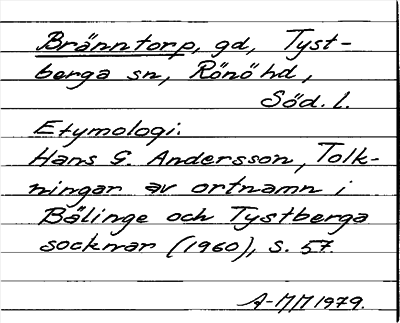 Bränntorp, gd, Tyst-
berga sn, Rönö hd,
Söd. l.
Etymologi:
Hans G. Andersson, Tolk-
ningar av ortnamn i
Bälinge och Tystberga
socknar (1960), s. 57.
A-MM 1979.